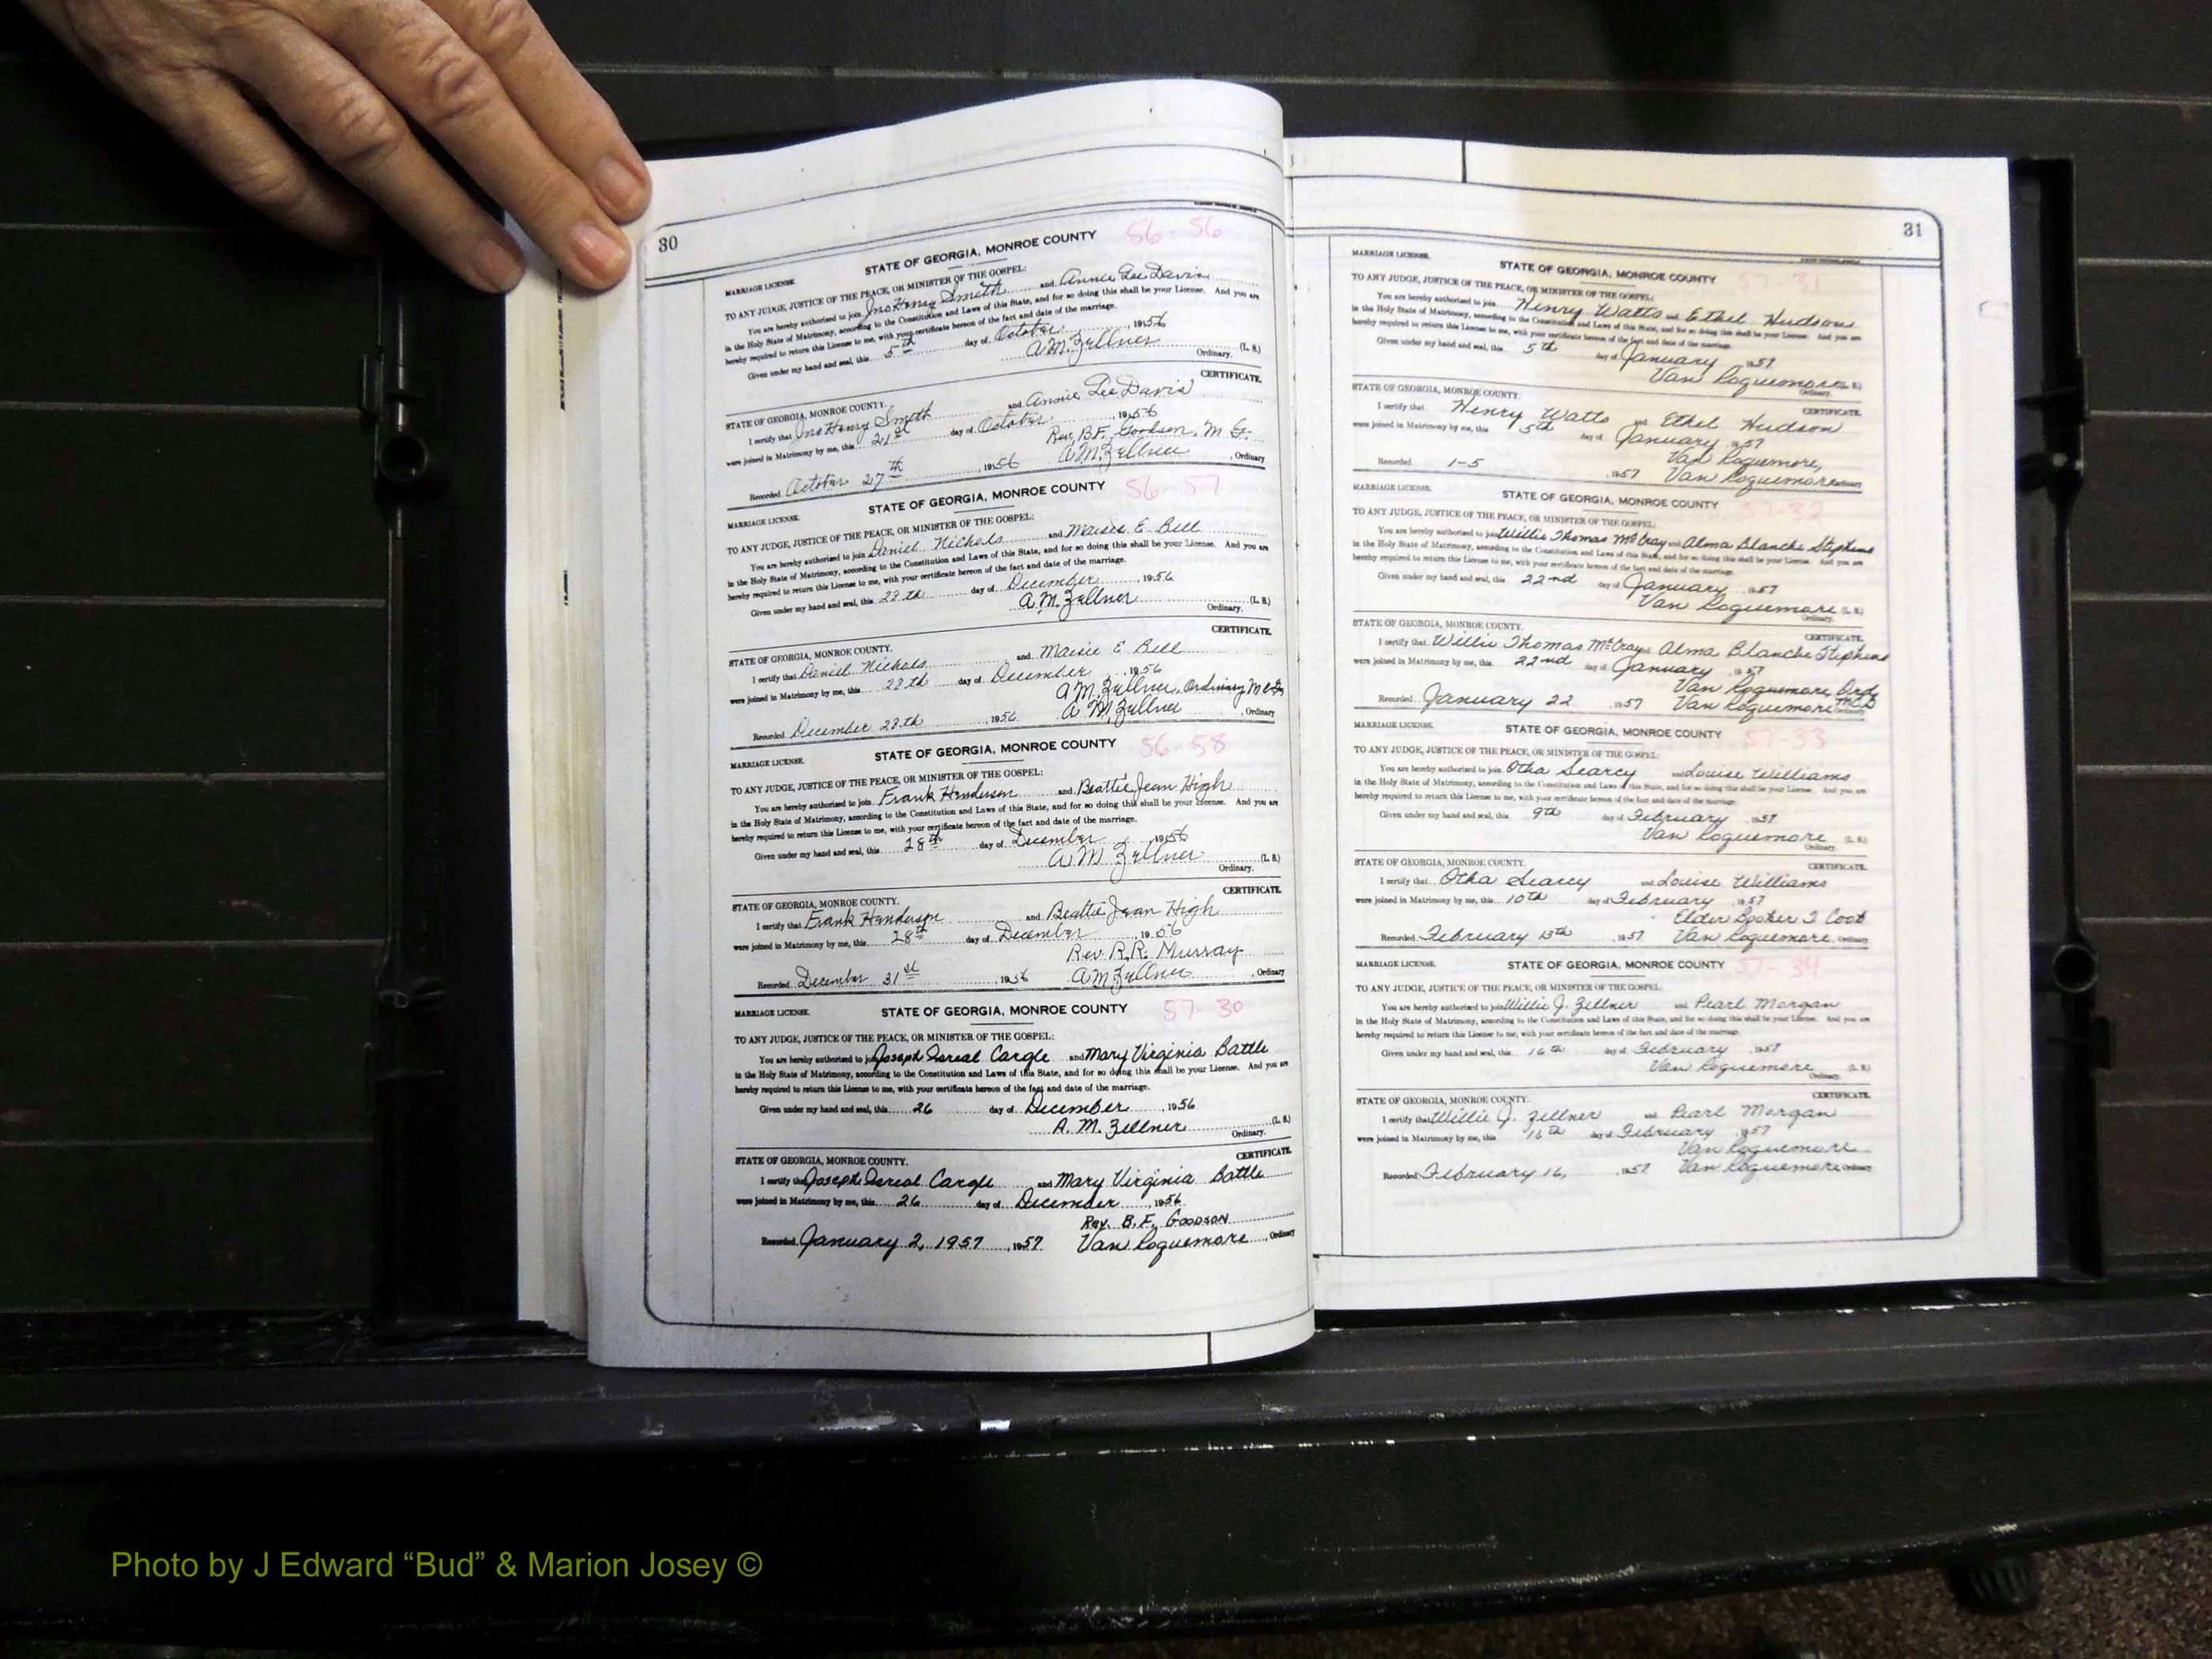 30
STATE OF GEORGIA, MONROE COUNTY 56-56
MARRIAGE LICENSE.
TO ANY JUDGE, JUSTICE OF THE PEACE, OR MINISTER OF THE GOSPEL:
You are hereby authorized to join Jno Henry Smith and Annie Lee Davis
in the Holy State of Matrimony, according to the Constitution and Laws of this State, and for so doing this shall be your License. And you are
hereby required to return this License to me, with your certificate hereon of the fact and date of the marriage.
Given under my hand and seal, this 5th day of October, 1956
A.M. Zellner (L. S.)
Ordinary.
CERTIFICATE.
STATE OF GEORGIA, MONROE COUNTY.
I certify that Jno Henry Smith and Annie Lee Davis
were joined in Matrimony by me, this 21st day of October, 1956
Rev. B.F. Goodson, M.G.
Recorded October 27th, 1956 A.M. Zellner, Ordinary
STATE OF GEORGIA, MONROE COUNTY 56-57
MARRIAGE LICENSE.
TO ANY JUDGE, JUSTICE OF THE PEACE, OR MINISTER OF THE GOSPEL:
You are hereby authorized to join Daniel Nichols and Maisie E. Bell
in the Holy State of Matrimony, according to the Constitution and Laws of this State, and for so doing this shall be your License. And you are
hereby required to return this License to me, with your certificate hereon of the fact and date of the marriage.
Given under my hand and seal, this 28th day of December, 1956
A.M. Zellner (L. S.)
Ordinary.
CERTIFICATE.
STATE OF GEORGIA, MONROE COUNTY.
I certify that Daniel Nichols and Maisie E Bell
were joined in Matrimony by me, this 28th day of December, 1956
A.M. Zellner, Ordinary
Recorded December 28th, 1956 A M Zellner, Ordinary
STATE OF GEORGIA, MONROE COUNTY 56-58
MARRIAGE LICENSE.
TO ANY JUDGE, JUSTICE OF THE PEACE, OR MINISTER OF THE GOSPEL:
You are hereby authorized to join Frank Henderson and Beattie Jean High
in the Holy State of Matrimony, according to the Constitution and Laws of this State, and for so doing this shall be your License. And you are
hereby required to return this License to me, with your certificate hereon of the fact and date of the marriage.
Given under my hand and seal, this 28th day of December, 1956
A M Zellner (L. S.)
Ordinary.
CERTIFICATE.
STATE OF GEORGIA, MONROE COUNTY.
I certify that Frank Henderson and Beattie Jean High
were joined in Matrimony by me, this 28th day of December, 1956
Rev. R.R. Murray
Recorded December 31st, 1956 A M Zellner, Ordinary
STATE OF GEORGIA, MONROE COUNTY 57-30
MARRIAGE LICENSE.
TO ANY JUDGE, JUSTICE OF THE PEACE, OR MINISTER OF THE GOSPEL:
You are hereby authorized to join Joseph Cargle and Mary Virginia Battle
in the Holy State of Matrimony, according to the Constitution and Laws of this State, and for so doing this shall be your License. And you are
hereby required to return this License to me, with your certificate hereon of the fact and date of the marriage.
Given under my hand and seal, this 26 day of December, 1956
A. M. Zellner (L. S.)
Ordinary.
CERTIFICATE.
STATE OF GEORGIA, MONROE COUNTY.
I certify that Joseph Cargle and Mary Virginia Battle
were joined in Matrimony by me, this 26 day of December, 1956
Rev. B.F. Goodson
Recorded January 2, 1957, 1957 Van Roquemore, Ordinary
31
MARRIAGE LICENSE. STATE OF GEORGIA, MONROE COUNTY 57-31
TO ANY JUDGE, JUSTICE OF THE PEACE, OR MINISTER OF THE GOSPEL:
You are hereby authorized to join Henry Watts and Ethel Hudson
in the Holy State of Matrimony, according to the Constitution and Laws of this State, and for so doing this shall be your License. And you are
hereby required to return this License to me, with your certificate hereon of the fact and date of the marriage.
Given under my hand and seal, this 5th day of January 1957
Van Roquemore (L. S.)
Ordinary.
STATE OF GEORGIA, MONROE COUNTY. CERTIFICATE.
I certify that Henry Watts and Ethel Hudson
were joined in Matrimony by me, this 5th day of January 1957
Van Roquemore,
Recorded 1-5, 1957 Van Roquemore Ordinary
MARRIAGE LICENSE. STATE OF GEORGIA, MONROE COUNTY 57-32
TO ANY JUDGE, JUSTICE OF THE PEACE, OR MINISTER OF THE GOSPEL:
You are hereby authorized to join Willie Thomas McCray and Alma Blanche Stephens
in the Holy State of Matrimony, according to the Constitution and Laws of this State, and for so doing this shall be your License. And you are
hereby required to return this License to me, with your certificate hereon of the fact and date of the marriage.
Given under my hand and seal, this 22nd day of January 1957
Van Roquemore (L. S.)
Ordinary.
STATE OF GEORGIA, MONROE COUNTY. CERTIFICATE.
I certify that Willie Thomas McCray and Alma Blanche Stephens
were joined in Matrimony by me, this 22nd day of January 1957
Van Roquemore, Ord.
Recorded January 22, 1957 Van Roquemore
MARRIAGE LICENSE. STATE OF GEORGIA, MONROE COUNTY 57-33
TO ANY JUDGE, JUSTICE OF THE PEACE, OR MINISTER OF THE GOSPEL:
You are hereby authorized to join Otha Searcy and Louise Williams
in the Holy State of Matrimony, according to the Constitution and Laws of this State, and for so doing this shall be your License. And you are
hereby required to return this License to me, with your certificate hereon of the fact and date of the marriage.
Given under my hand and seal, this 9th day of February 1957
Van Roquemore (L. S.)
Ordinary.
STATE OF GEORGIA, MONROE COUNTY. CERTIFICATE.
I certify that Otha Searcy and Louise Williams
were joined in Matrimony by me, this 10th day of February 1957
Elder Booker T. Cook
Recorded February 13th, 1957 Van Roquemore, Ordinary
MARRIAGE LICENSE. STATE OF GEORGIA, MONROE COUNTY 57-34
TO ANY JUDGE, JUSTICE OF THE PEACE, OR MINISTER OF THE GOSPEL.
You are hereby authorized to join Willie J. Zellner and Pearl Morgan
in the Holy State of Matrimony, according to the Constitution and Laws of this State, and for so doing this shall be your License. And you are
hereby required to return this License to me, with your certificate hereon of the fact and date of the marriage.
Given under my hand and seal, this 16th day of February 1957
Van Roquemore (L. S.)
Ordinary.
STATE OF GEORGIA, MONROE COUNTY. CERTIFICATE.
I certify that Willie J. Zellner and Pearl Morgan
were joined in Matrimony by me, this 16th day of February 1957
Van Roquemore
Recorded February 16, 1957 Van Roquemore Ordinary
Photo by J Edward “Bud” & Marion Josey ©